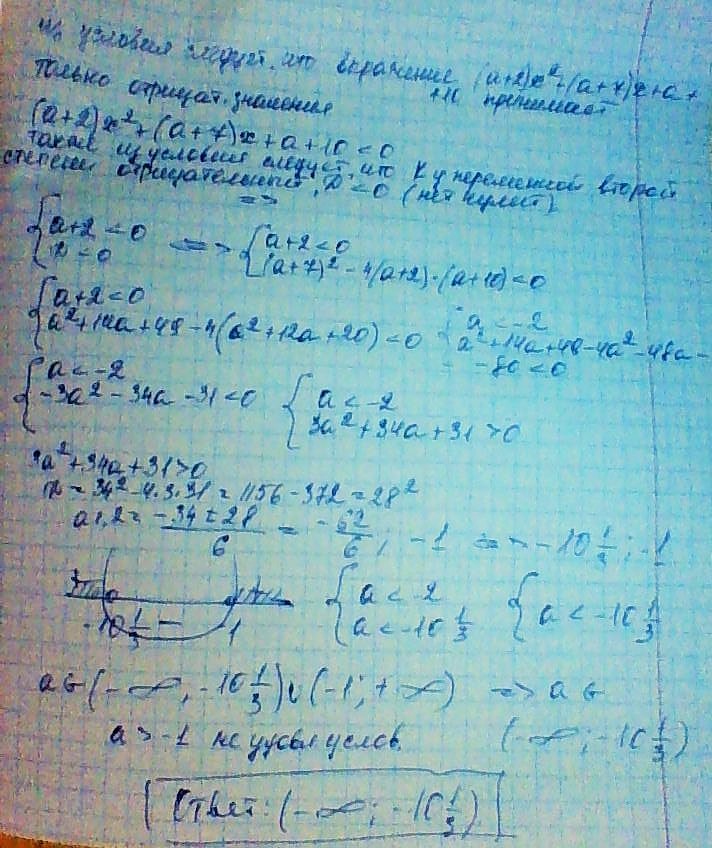 из условия следует, что выражение (a+2)x²+(a+7)x+a+
+10 принимает
только отрицат. значения
(a+2)x²+(a+7)x+a+10<0
также из условия следует, что K у переменной второй
степени отрицательный, D<0 (нет нулей)
=>
{a+2<0 {a+2<0
{D<0 <=> {(a+7)²-4(a+2)·(a+10)<0
{a+2<0 {a<-2
{a²+14a+49-4(a²+12a+20)<0 {a²+14a+49-4a²-48a-
-80<0
{a<-2 {a<-2
{-3a²-34a-31<0 {3a²+34a+31>0
3a²+34a+31>0
D=34²-4·3·31=1156-372=28²
a1,2=-34±28/6=-62/6; -1 => -10 1/3; -1
-10 1/3 - 1 {a<-2 {a<-10 1/3
{a<-10 1/3
a∈(-∞;-10 1/3)∪(-1;+∞) => a∈
a>-1 не удовл услов. (-∞;-10 1/3)
Ответ: (-∞;-10 1/3)